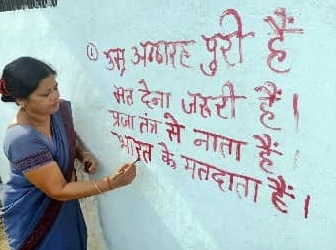 ① उम्र अठ्ठारह पुरी हैं
मत देना जरूरी हैं।
प्रजा तंत्र से नाता हैं।
भारत के मतदाता हैं।